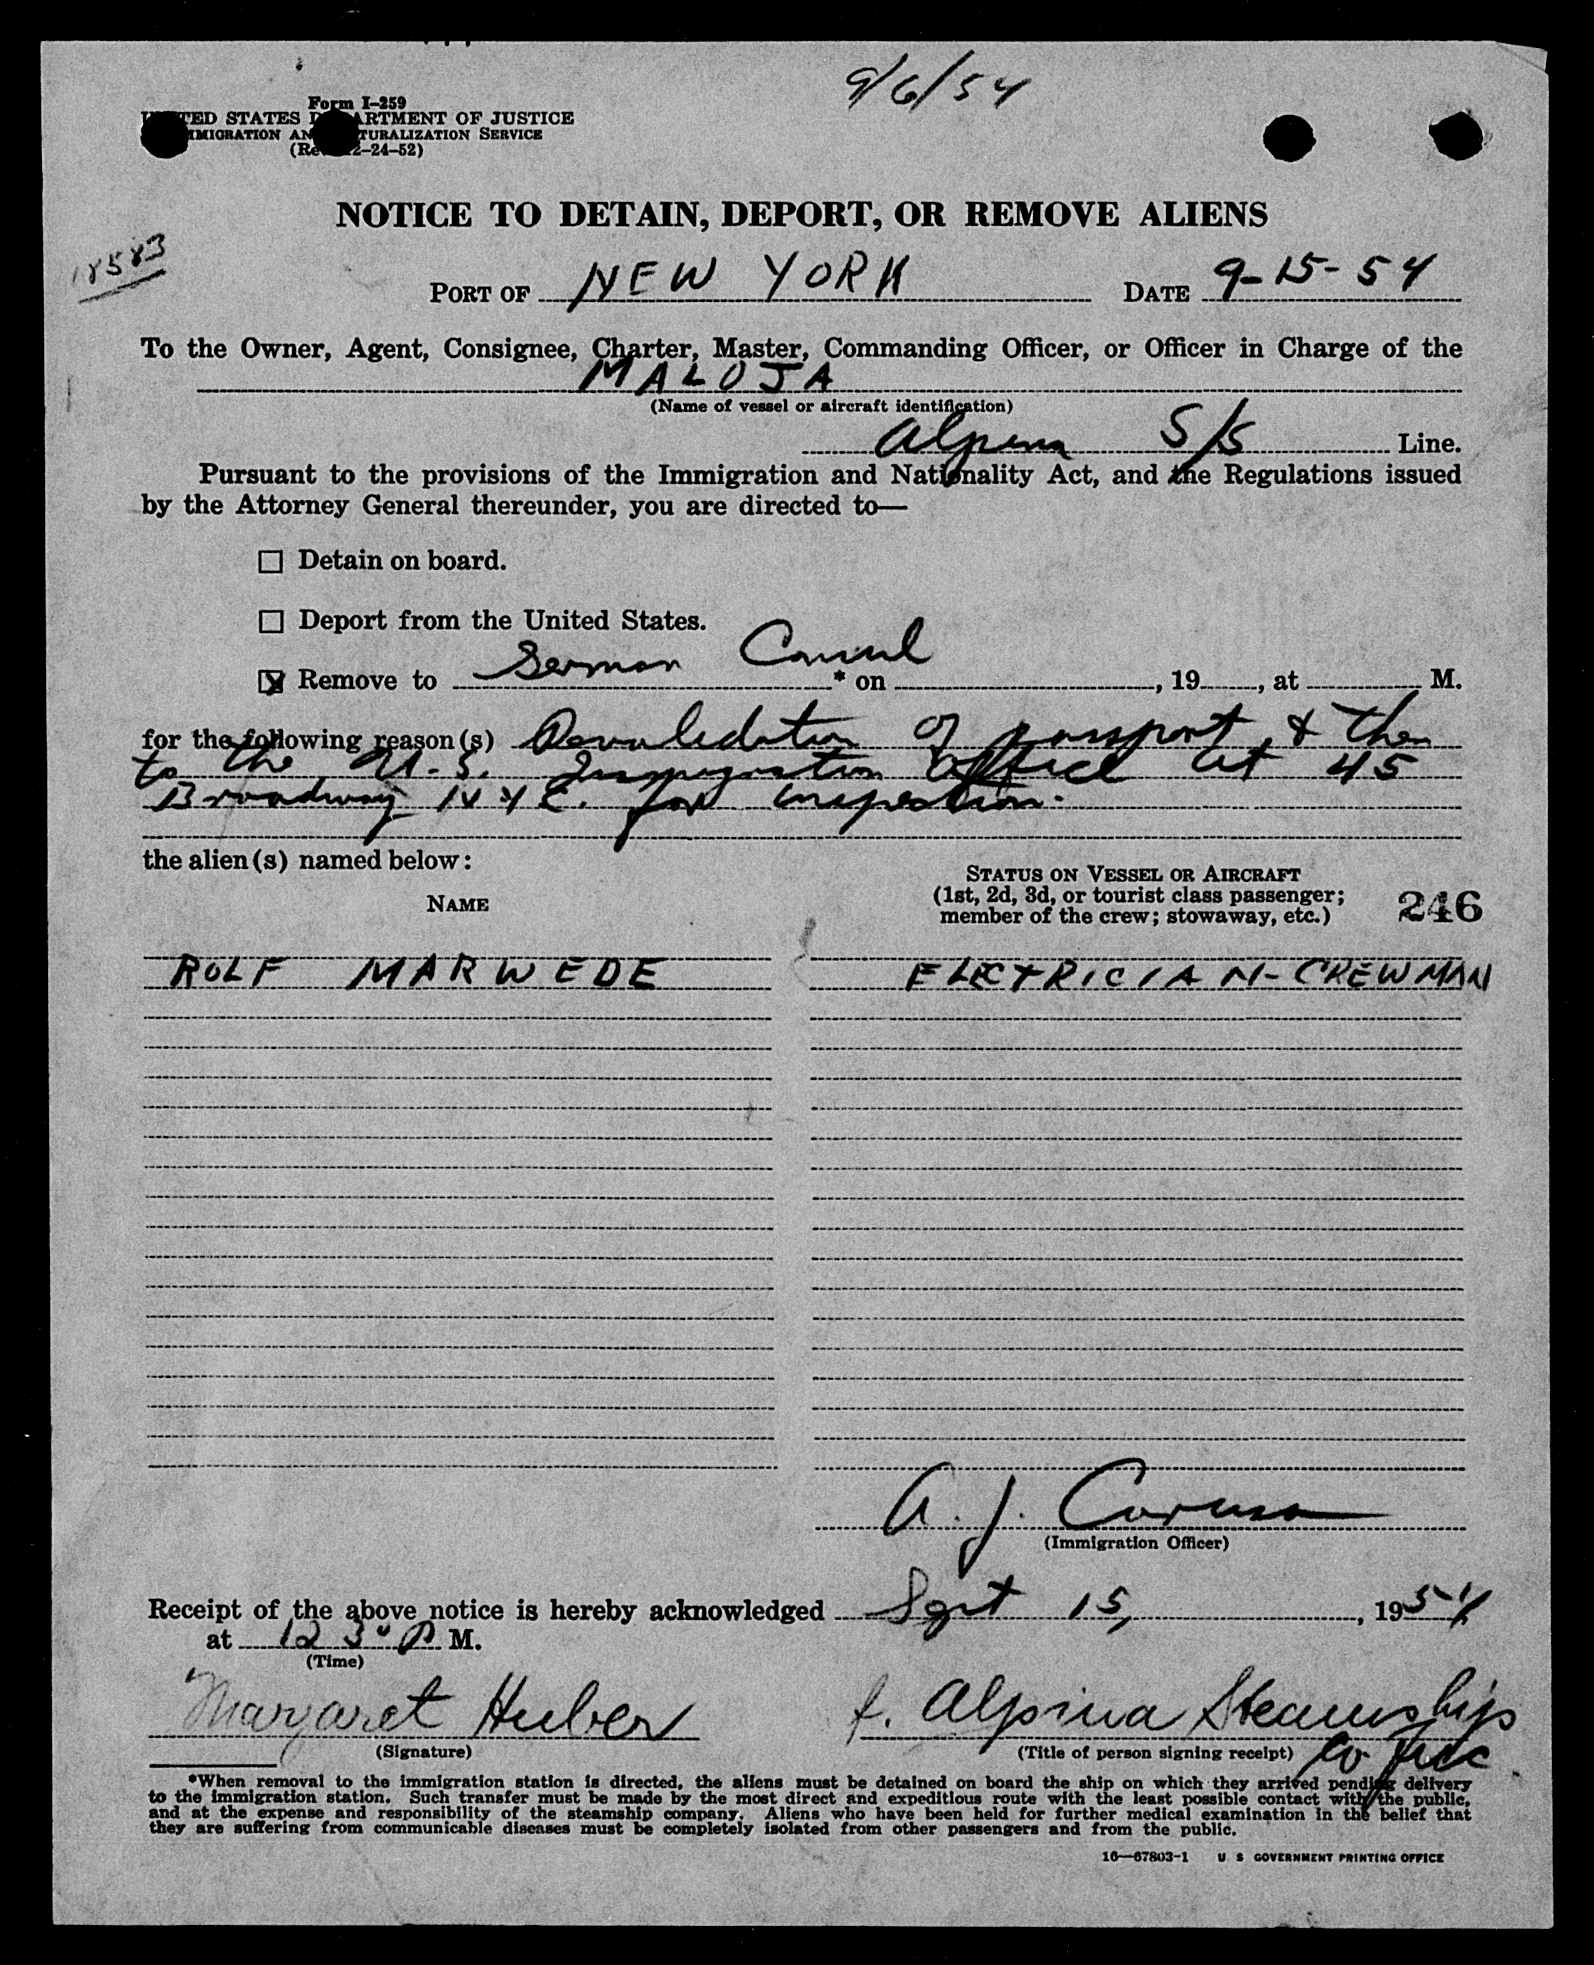 9/6/54
Form I-259
UNITED STATES DEPARTMENT OF JUSTICE
IMMIGRATION AND NATURALIZATION SERVICE
(Rev. 12-24-52)
NOTICE TO DETAIN, DEPORT, OR REMOVE ALIENS
18583
PORT OF NEW YORK DATE 9-15-54
To the Owner, Agent, Consignee, Charter, Master, Commanding Officer, or Officer in Charge of the
MALOJA
(Name of vessel or aircraft identification)
Alpina S/S Line.
Pursuant to the provisions of the Immigration and Nationality Act, and the Regulations issued
by the Attorney General thereunder, you are directed to—
☐ Detain on board.
☐ Deport from the United States.
☒ Remove to German Consul * on , 19 , at M.
for the following reason(s) Revalidation of passport & then
to the U.S. Immigration Office at 45
Broadway NYC. for inspection.
the alien(s) named below:
STATUS ON VESSEL OR AIRCRAFT
NAME (1st, 2d, 3d, or tourist class passenger;
member of the crew; stowaway, etc.) 246
ROLF MARWEDE ELECTRICIAN-CREWMAN
A. J. Caruso
(Immigration Officer)
Receipt of the above notice is hereby acknowledged Sept 15, , 1954
at 12 30 P M.
(Time)
Margaret Huber f. Alpina Steamship
(Signature) (Title of person signing receipt) Co Inc.
*When removal to the immigration station is directed, the aliens must be detained on board the ship on which they arrived pending delivery
to the immigration station. Such transfer must be made by the most direct and expeditious route with the least possible contact with the public,
and at the expense and responsibility of the steamship company. Aliens who have been held for further medical examination in the belief that
they are suffering from communicable diseases must be completely isolated from other passengers and from the public.
16—67803-1 U S GOVERNMENT PRINTING OFFICE